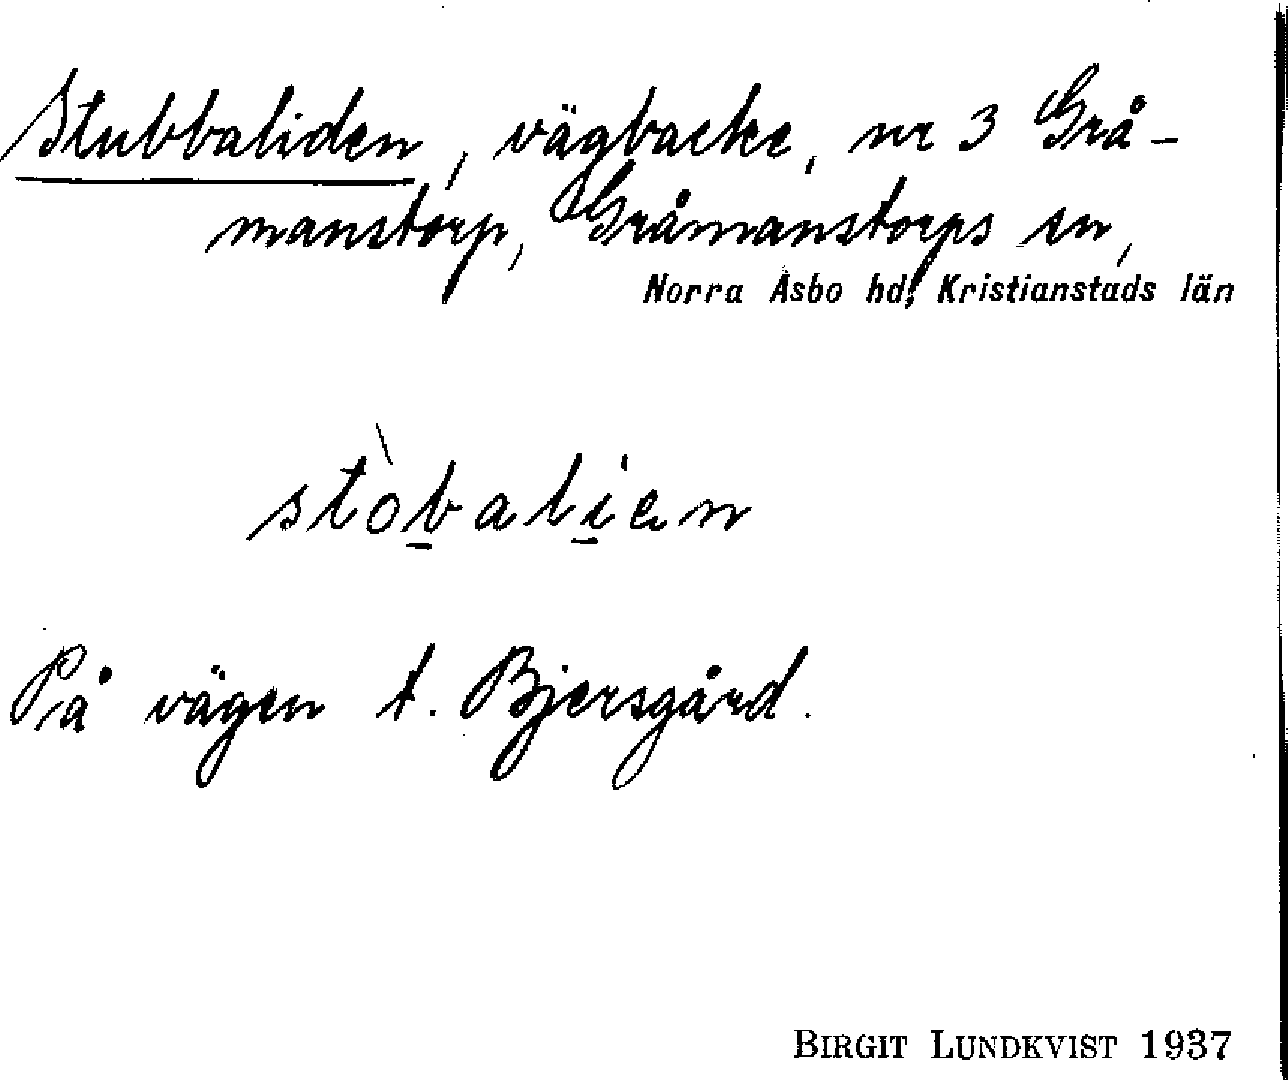 Stubbaliden, vägbacke, nr 3 Grå-
manstorp, Gråmanstorps sn,
Norra Åsbo hd, Kristianstads län
stòbalien
På vägen t. Bjersgård.
BIRGIT LUNDKVIST 1937